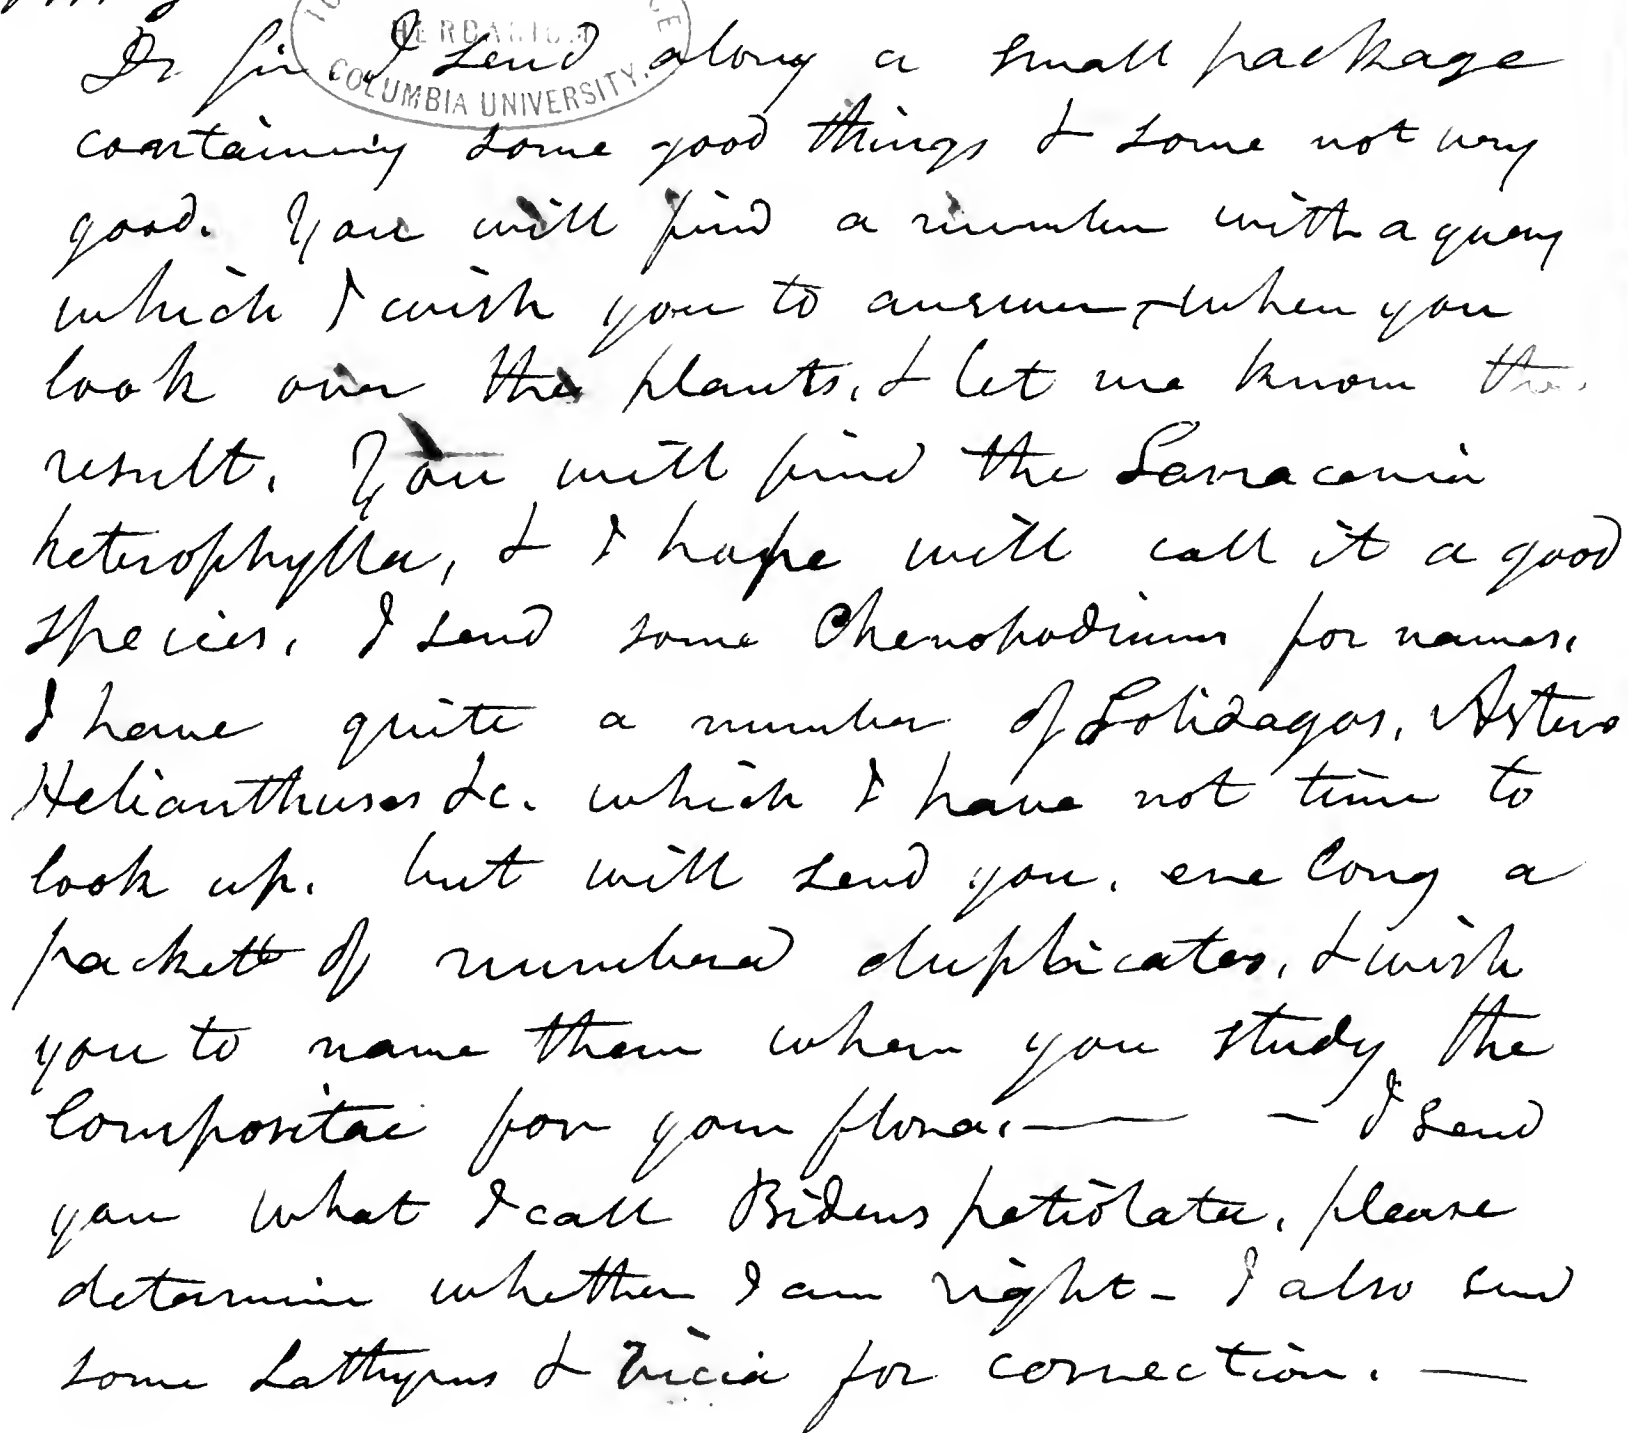 HERBARIUM
COLUMBIA UNIVERSITY.
Dr Sir. I send along a small package
containing some good things & some not very
good. You will find a number with a query
which I wish you to answer, when you
look over the plants, & let me know the
result. You will find the Sarracenia
heterophylla, & I hope will call it a good
species. I send some Chenopodiums for names.
I have quite a number of Solidagos, Asters
Helianthuses &c. which I have not time to
look up. but will send you. ere long a
packett of numbered duplicates, & wish
you to name them when you study the
Compositae for your flora. — — I send
you what I call Bidens petiolata, please
determine whether I am right - I also send
some Lathyrus & Vicia for correction. —